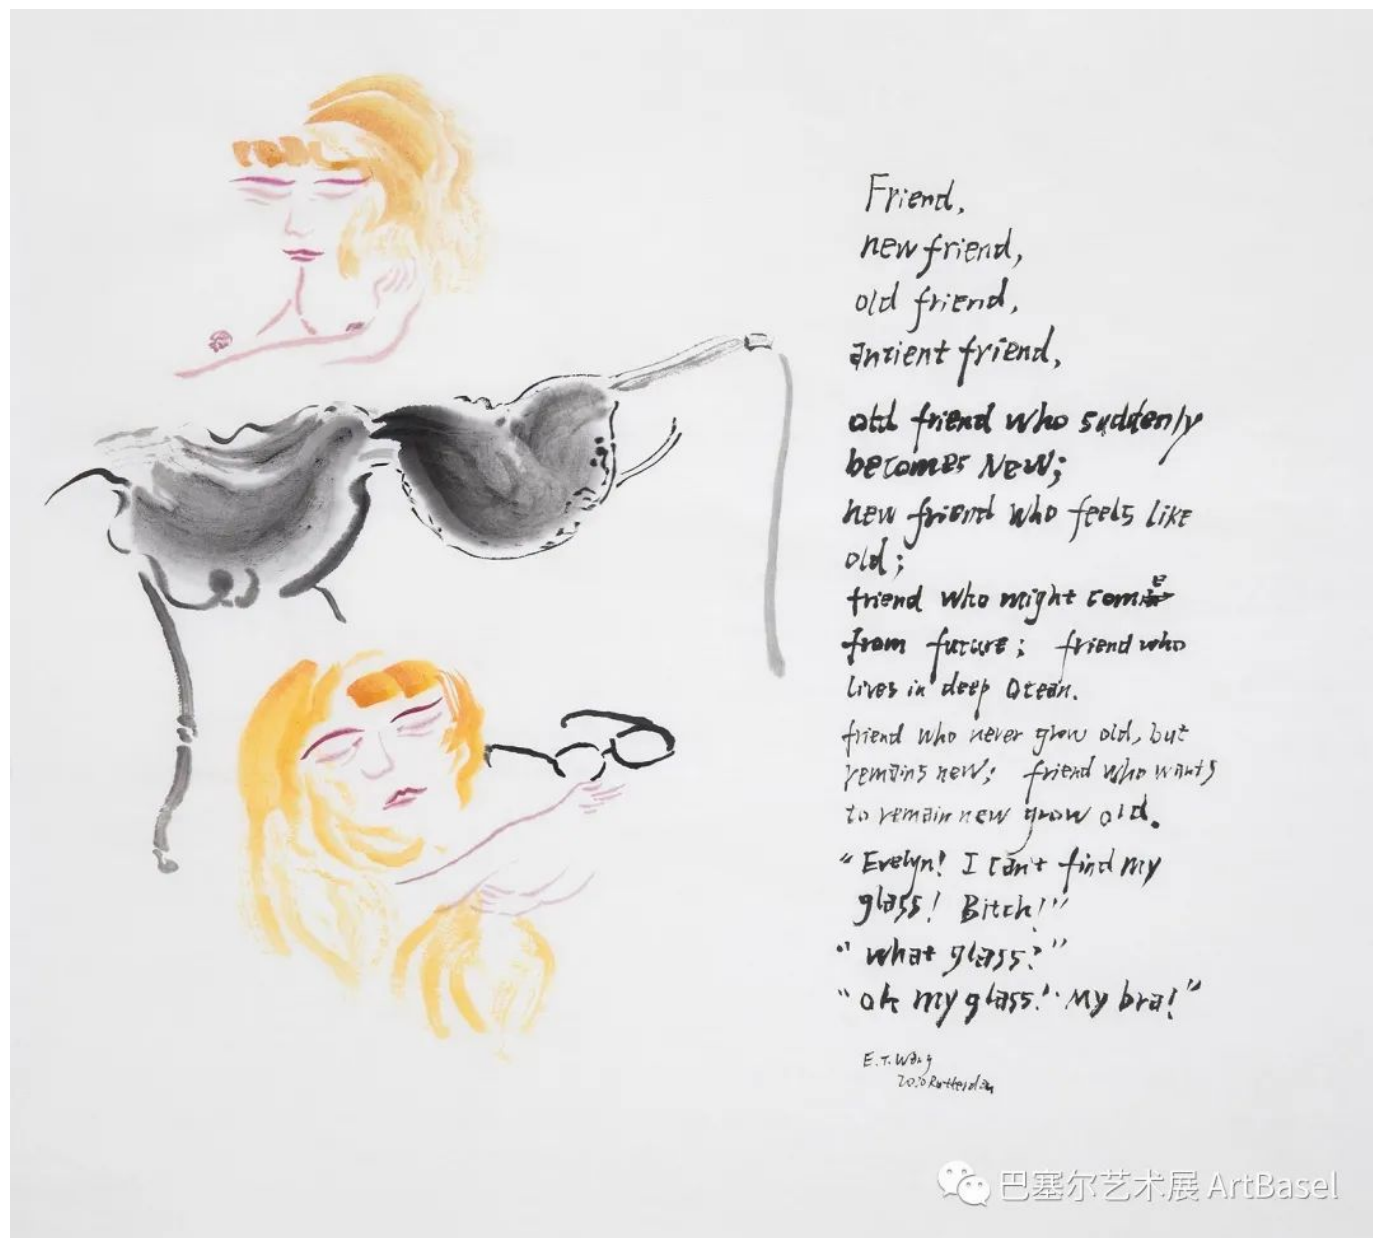 Friend,
new friend,
old friend,
antient friend,
old friend who suddenly
becomes New;
new friend who feels like
old;
friend who might come
from future; friend who
lives in deep Ocean.
friend who never grow old, but
remains new; friend who wants
to remain new grow old.
"Evelyn! I can't find my
glass! Bitch!"
"what glass?"
"oh my glass! My bra!"
E.T.Wang
2020 Rotterdam
巴塞尔艺术展 ArtBasel